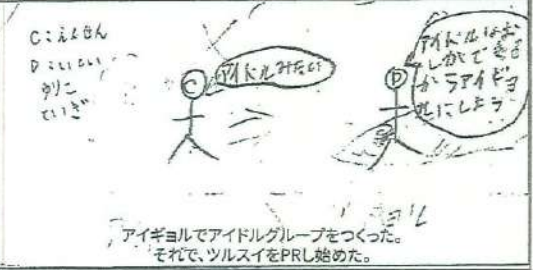 C:えくせん
D:
ゆりこ
ていぎ
C
アイドルみたい
D
アイドルはお
しがで
からアイギョ
ルにしよう
アイギョルでアイドルグループをつくった。
それで、ツルスイをPRし始めた。